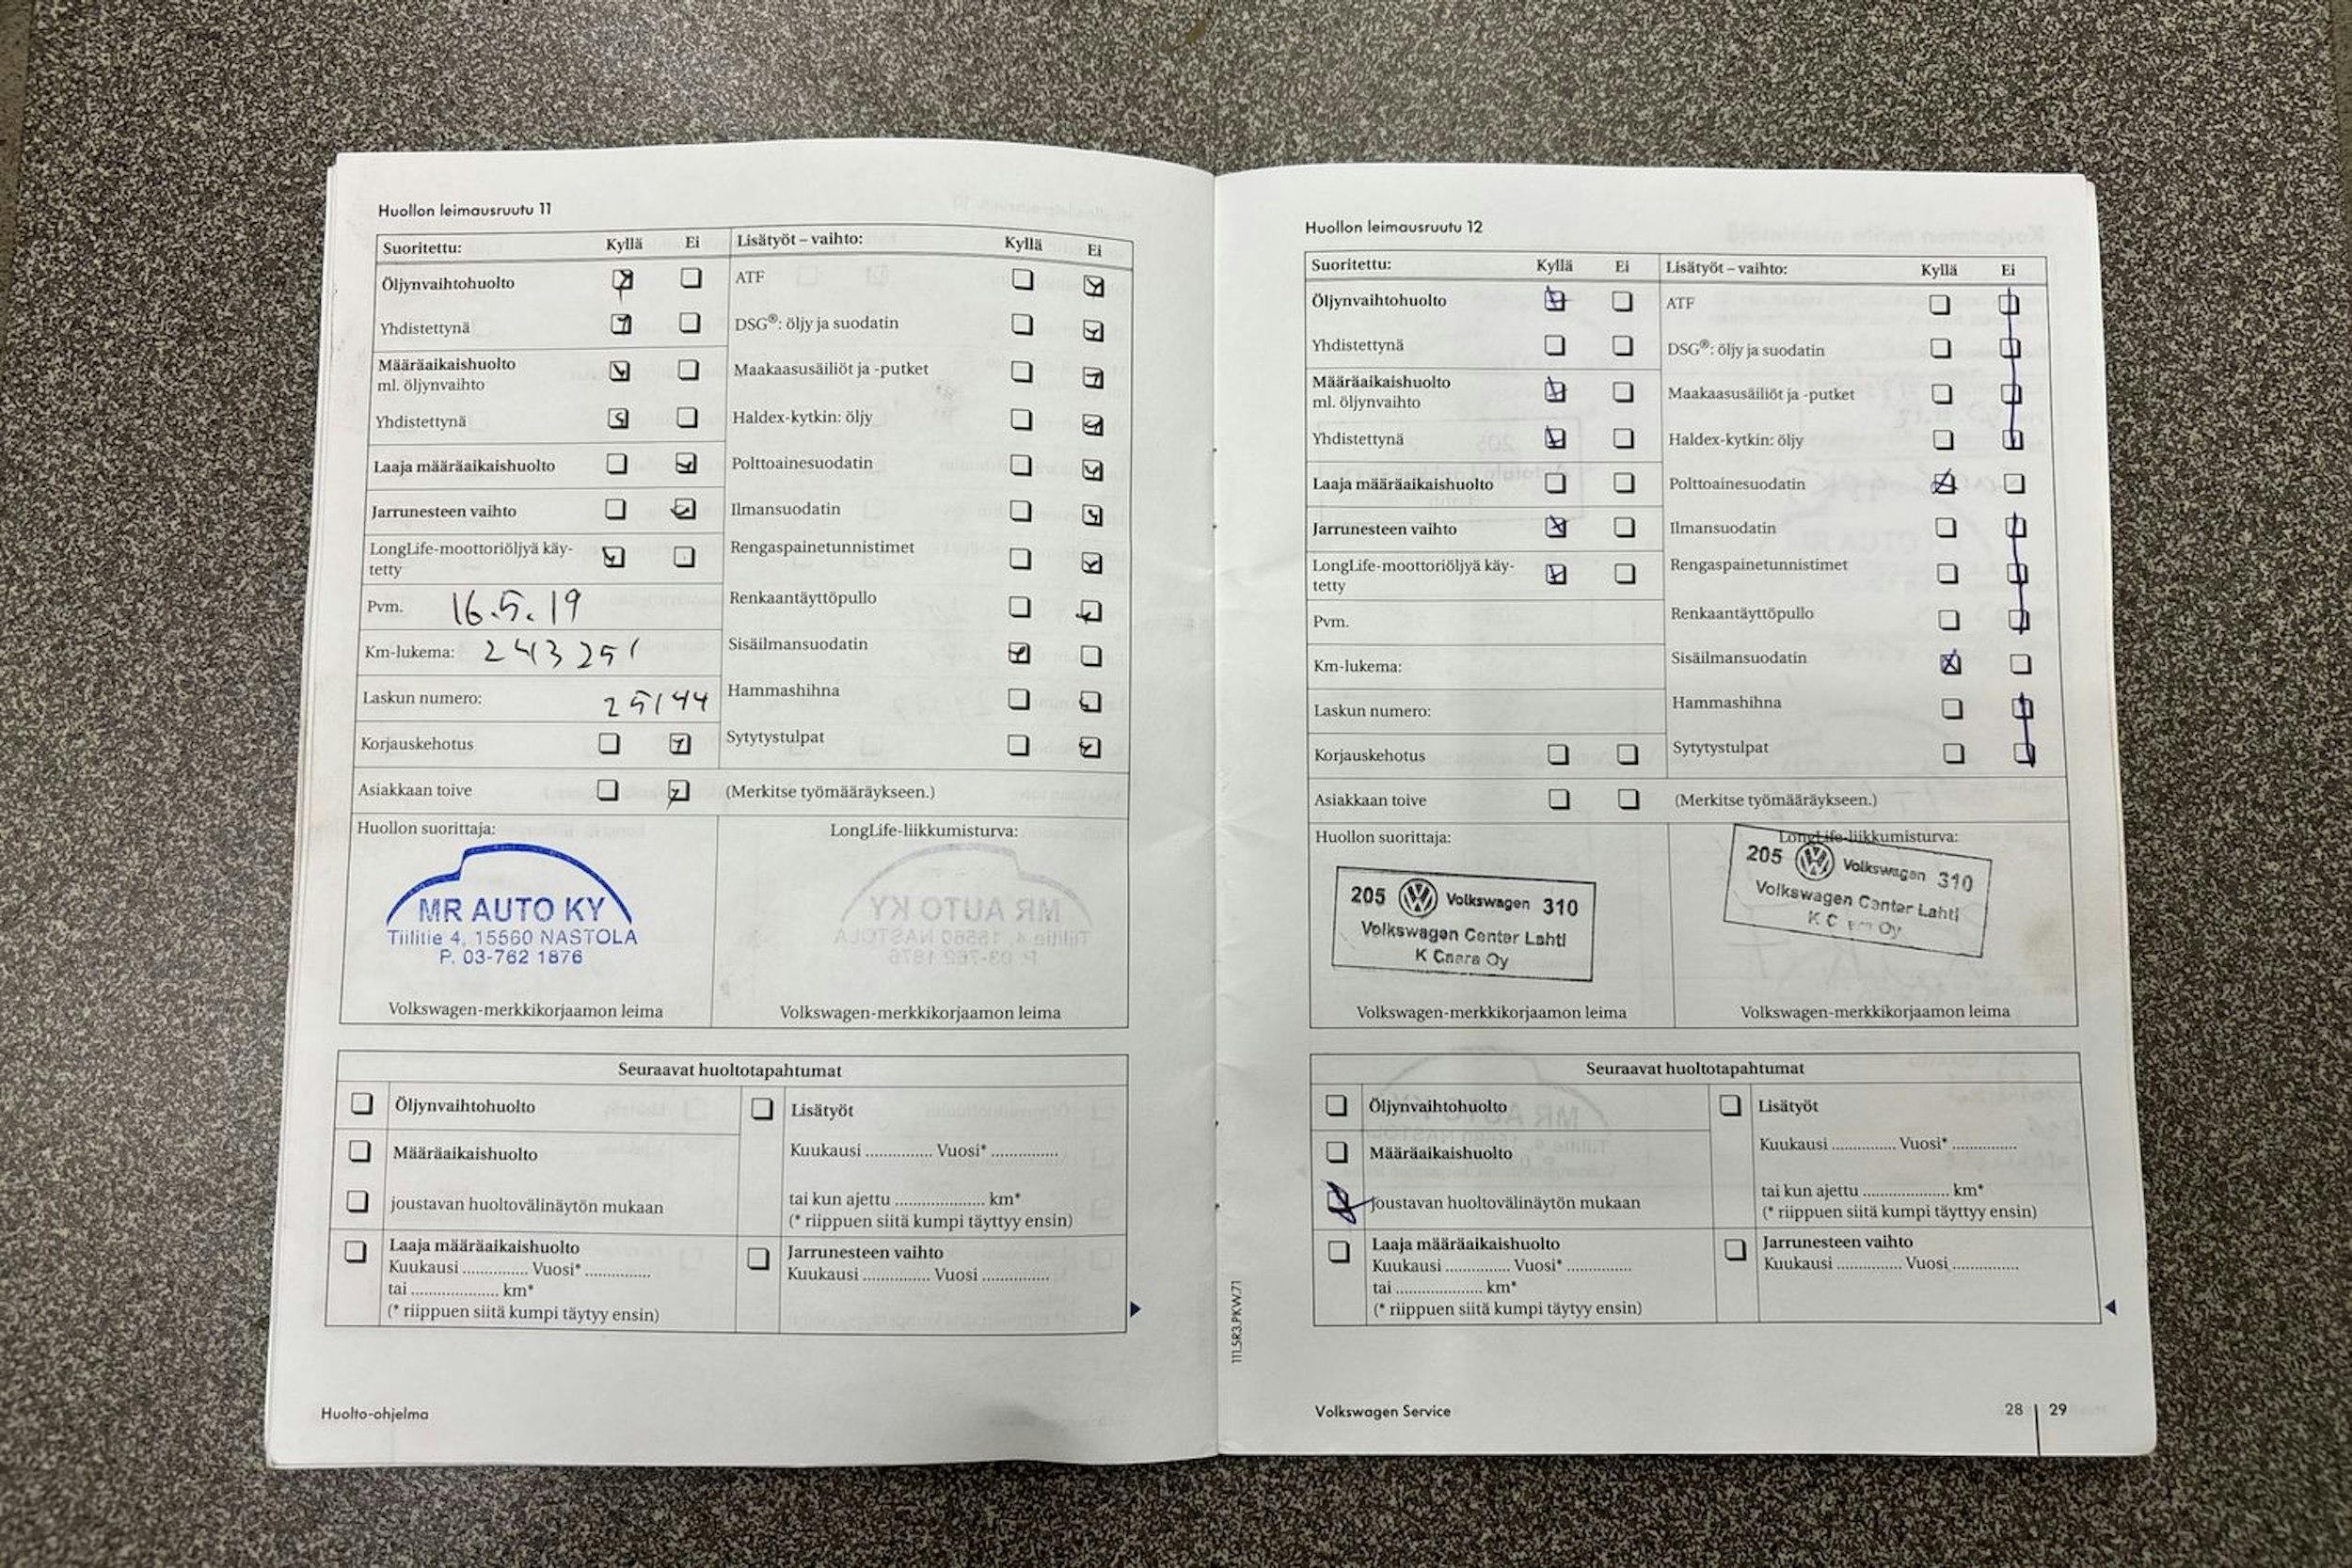 Huollon leimausruutu 11
Suoritettu: Kyllä Ei Lisätyöt – vaihto: Kyllä Ei
Öljynvaihtohuolto ATF
Yhdistettynä DSG®: öljy ja suodatin
Määräaikaishuolto Maakaasusäiliöt ja -putket
ml. öljynvaihto
Yhdistettynä Haldex-kytkin: öljy
Laaja määräaikaishuolto Polttoainesuodatin
Jarrunesteen vaihto Ilmansuodatin
LongLife-moottoriöljyä käy- Rengaspainetunnistimet
tetty
Pvm. 16.5.19 Renkaantäyttöpullo
Km-lukema: 243251 Sisäilmansuodatin
Laskun numero: 25144 Hammashihna
Korjauskehotus Sytytystulpat
Asiakkaan toive (Merkitse työmääräykseen.)
Huollon suorittaja: LongLife-liikkumisturva:
MR AUTO KY
Tiilitie 4, 15560 NASTOLA
P. 03-762 1876
Volkswagen-merkkikorjaamon leima Volkswagen-merkkikorjaamon leima
Seuraavat huoltotapahtumat
Öljynvaihtohuolto Lisätyöt
Määräaikaishuolto Kuukausi ............... Vuosi* ...............
joustavan huoltovälinäytön mukaan tai kun ajettu .................... km*
(* riippuen siitä kumpi täyttyy ensin)
Laaja määräaikaishuolto Jarrunesteen vaihto
Kuukausi ............... Vuosi* ............... Kuukausi ............... Vuosi ...............
tai .................... km*
(* riippuen siitä kumpi täytyy ensin)
Huolto-ohjelma
Huollon leimausruutu 12
Suoritettu: Kyllä Ei Lisätyöt – vaihto: Kyllä Ei
Öljynvaihtohuolto ATF
Yhdistettynä DSG®: öljy ja suodatin
Määräaikaishuolto Maakaasusäiliöt ja -putket
ml. öljynvaihto
Yhdistettynä Haldex-kytkin: öljy
Laaja määräaikaishuolto Polttoainesuodatin
Jarrunesteen vaihto Ilmansuodatin
LongLife-moottoriöljyä käy- Rengaspainetunnistimet
tetty
Pvm. Renkaantäyttöpullo
Km-lukema: Sisäilmansuodatin
Laskun numero: Hammashihna
Korjauskehotus Sytytystulpat
Asiakkaan toive (Merkitse työmääräykseen.)
Huollon suorittaja: LongLife-liikkumisturva:
205 Volkswagen 310
Volkswagen Center Lahti
K Caara Oy
205 Volkswagen 310
Volkswagen Center Lahti
K Oy
Volkswagen-merkkikorjaamon leima Volkswagen-merkkikorjaamon leima
Seuraavat huoltotapahtumat
Öljynvaihtohuolto Lisätyöt
Määräaikaishuolto Kuukausi ............... Vuosi* ...............
joustavan huoltovälinäytön mukaan tai kun ajettu .................... km*
(* riippuen siitä kumpi täyttyy ensin)
Laaja määräaikaishuolto Jarrunesteen vaihto
Kuukausi ............... Vuosi* ............... Kuukausi ............... Vuosi ...............
tai .................... km*
(* riippuen siitä kumpi täytyy ensin)
111.5R3.PKW.71
Volkswagen Service 28 29